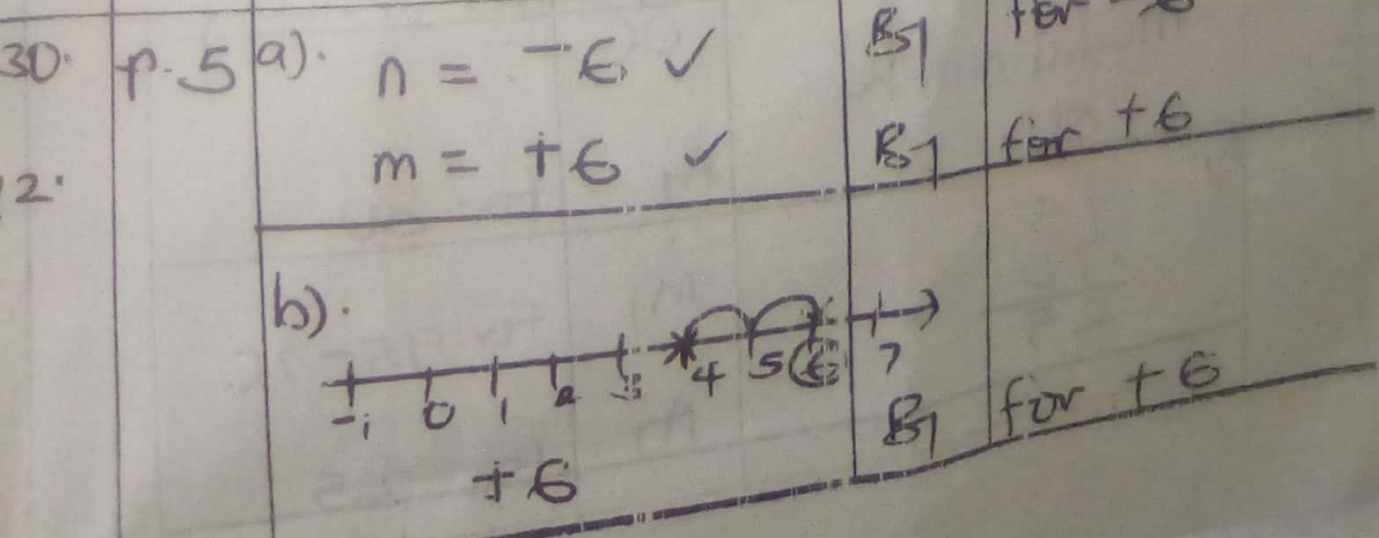 30. p.5 a). n = -6 ✓ B1 for -6
m = +6 ✓ B1 for +6
12.
b).
-1 0 1 2 3 4 5 6 7
+6 B1 for +6